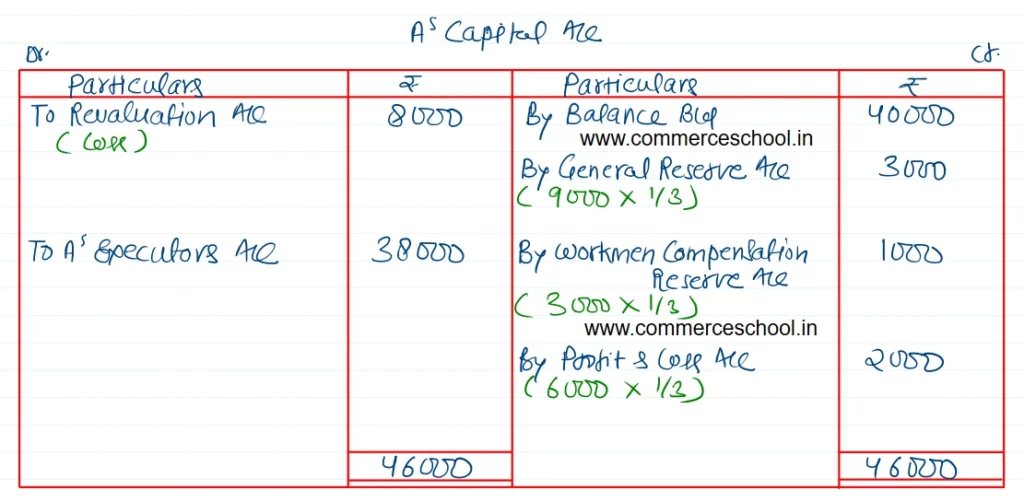 A's Capital A/c
Dr. Cr.
Particulars ₹ Particulars ₹
To Revaluation A/c 8000 By Balance B/d 40000
(Loss) www.commerceschool.in
By General Reserve A/c 3000
(9000 × 1/3)
To A's Executors A/c 38000 By Workmen Compensation 1000
Reserve A/c
(3000 × 1/3)
www.commerceschool.in
By Profit & Loss A/c 2000
(6000 × 1/3)
46000 46000